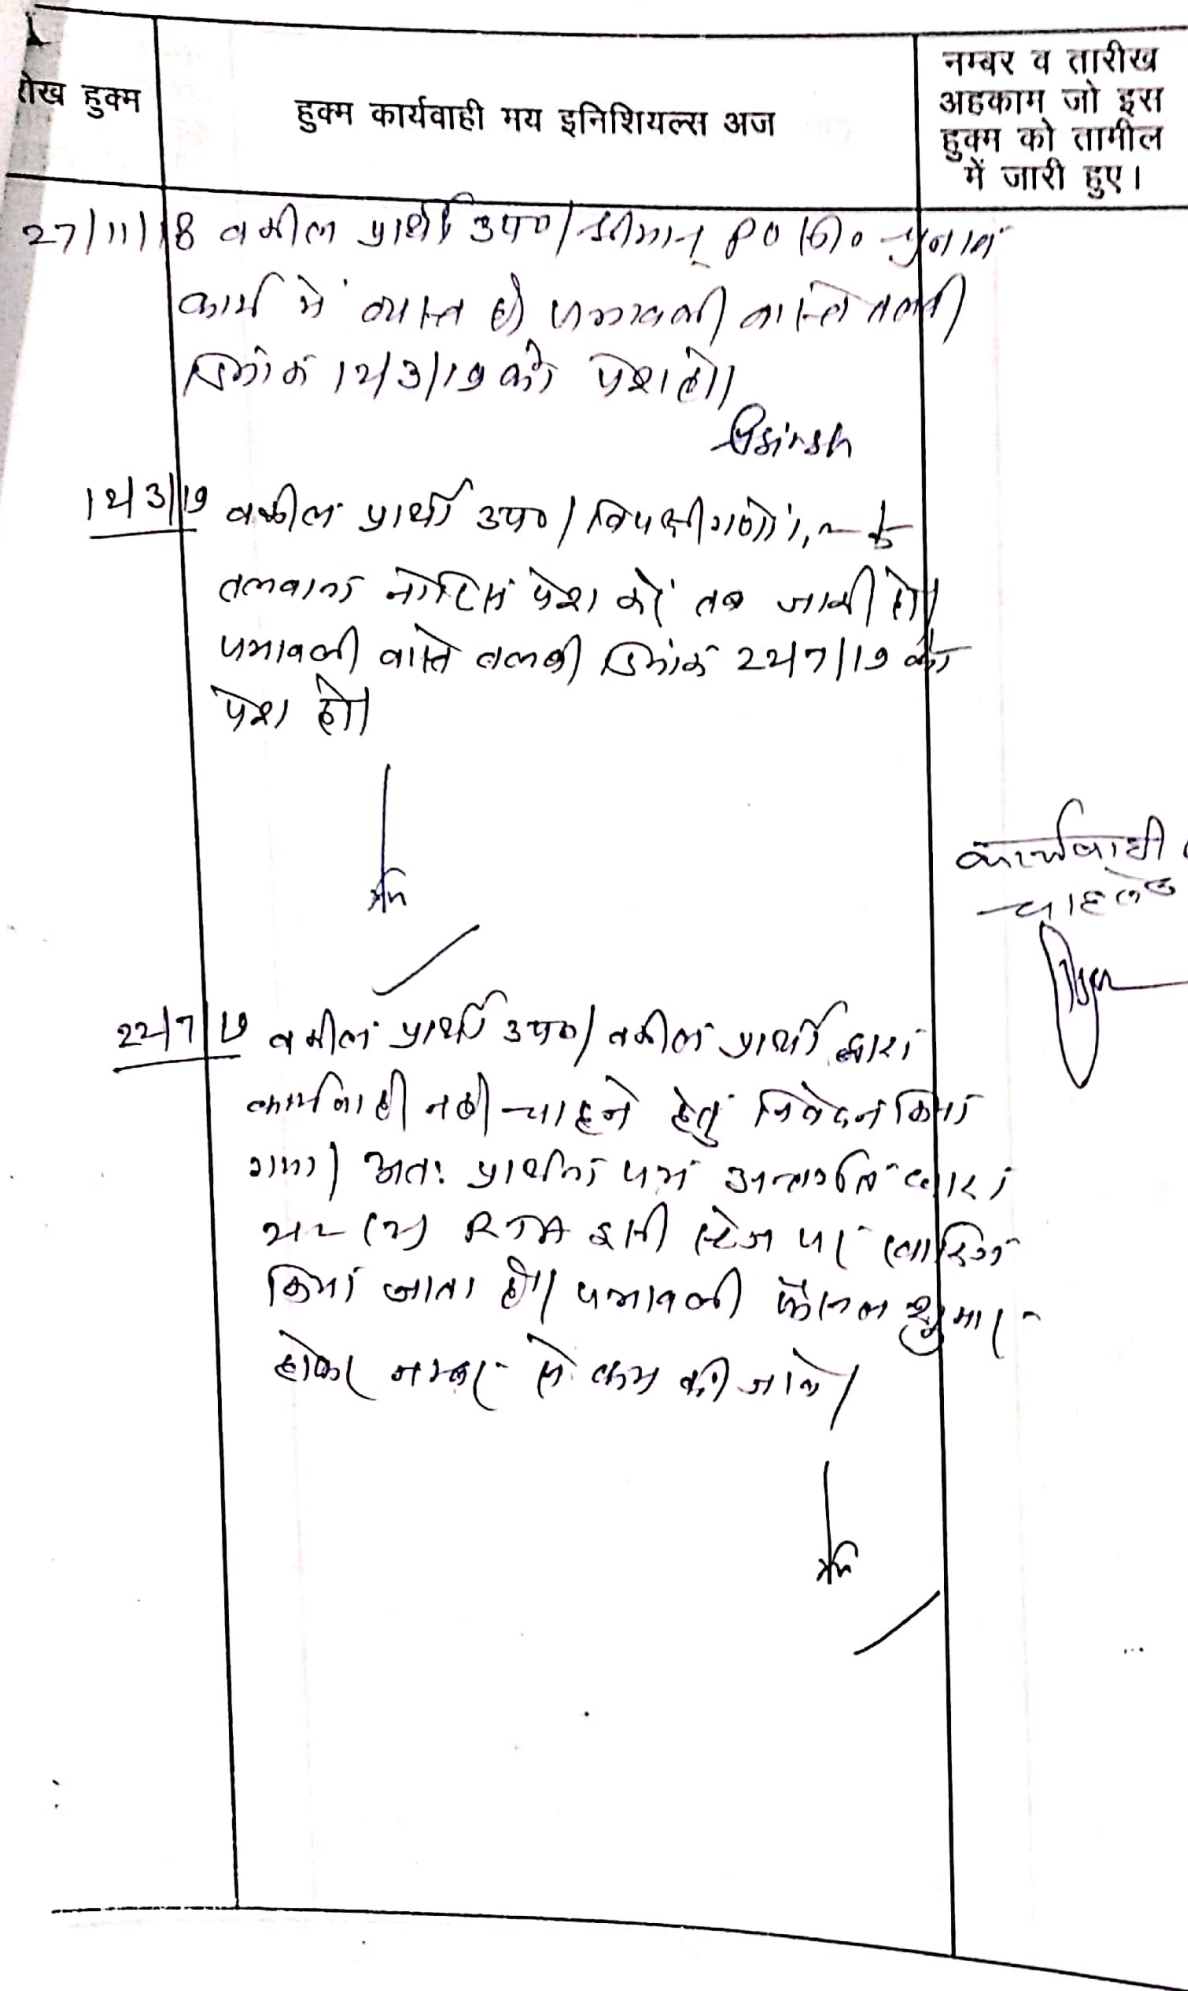 रीख हुक्म
हुक्म कार्यवाही मय इनिशियल्स अज
नम्बर व तारीख
अहकाम जो इस
हुक्म को तामील
में जारी हुए।
27/11/18 वकील प्रार्थी उप०/श्रीमान् P O चुनाव
कार्य में व्यस्त है। पत्रावली वास्ते तलबी
दिनांक 12/3/19 को पेश हो।
12/3/19 वकील प्रार्थी उप०/विपक्षीगणों के
तलवाना नोटिस पेश करें तब जारी हो।
पत्रावली वास्ते तलबी दिनांक 22/7/19 को
पेश हो।
कार्यवाही
चाहते
22/7/19 वकील प्रार्थी उप०/वकील प्रार्थी द्वारा
कार्यवाही नहीं चाहने हेतु निवेदन किया
गया। अतः प्रार्थना पत्र अन्तर्गत धारा
RTA इसी स्टेज पर खारिज
किया जाता है। पत्रावली फैसल शुमार
होकर नम्बर से कम की जावे।